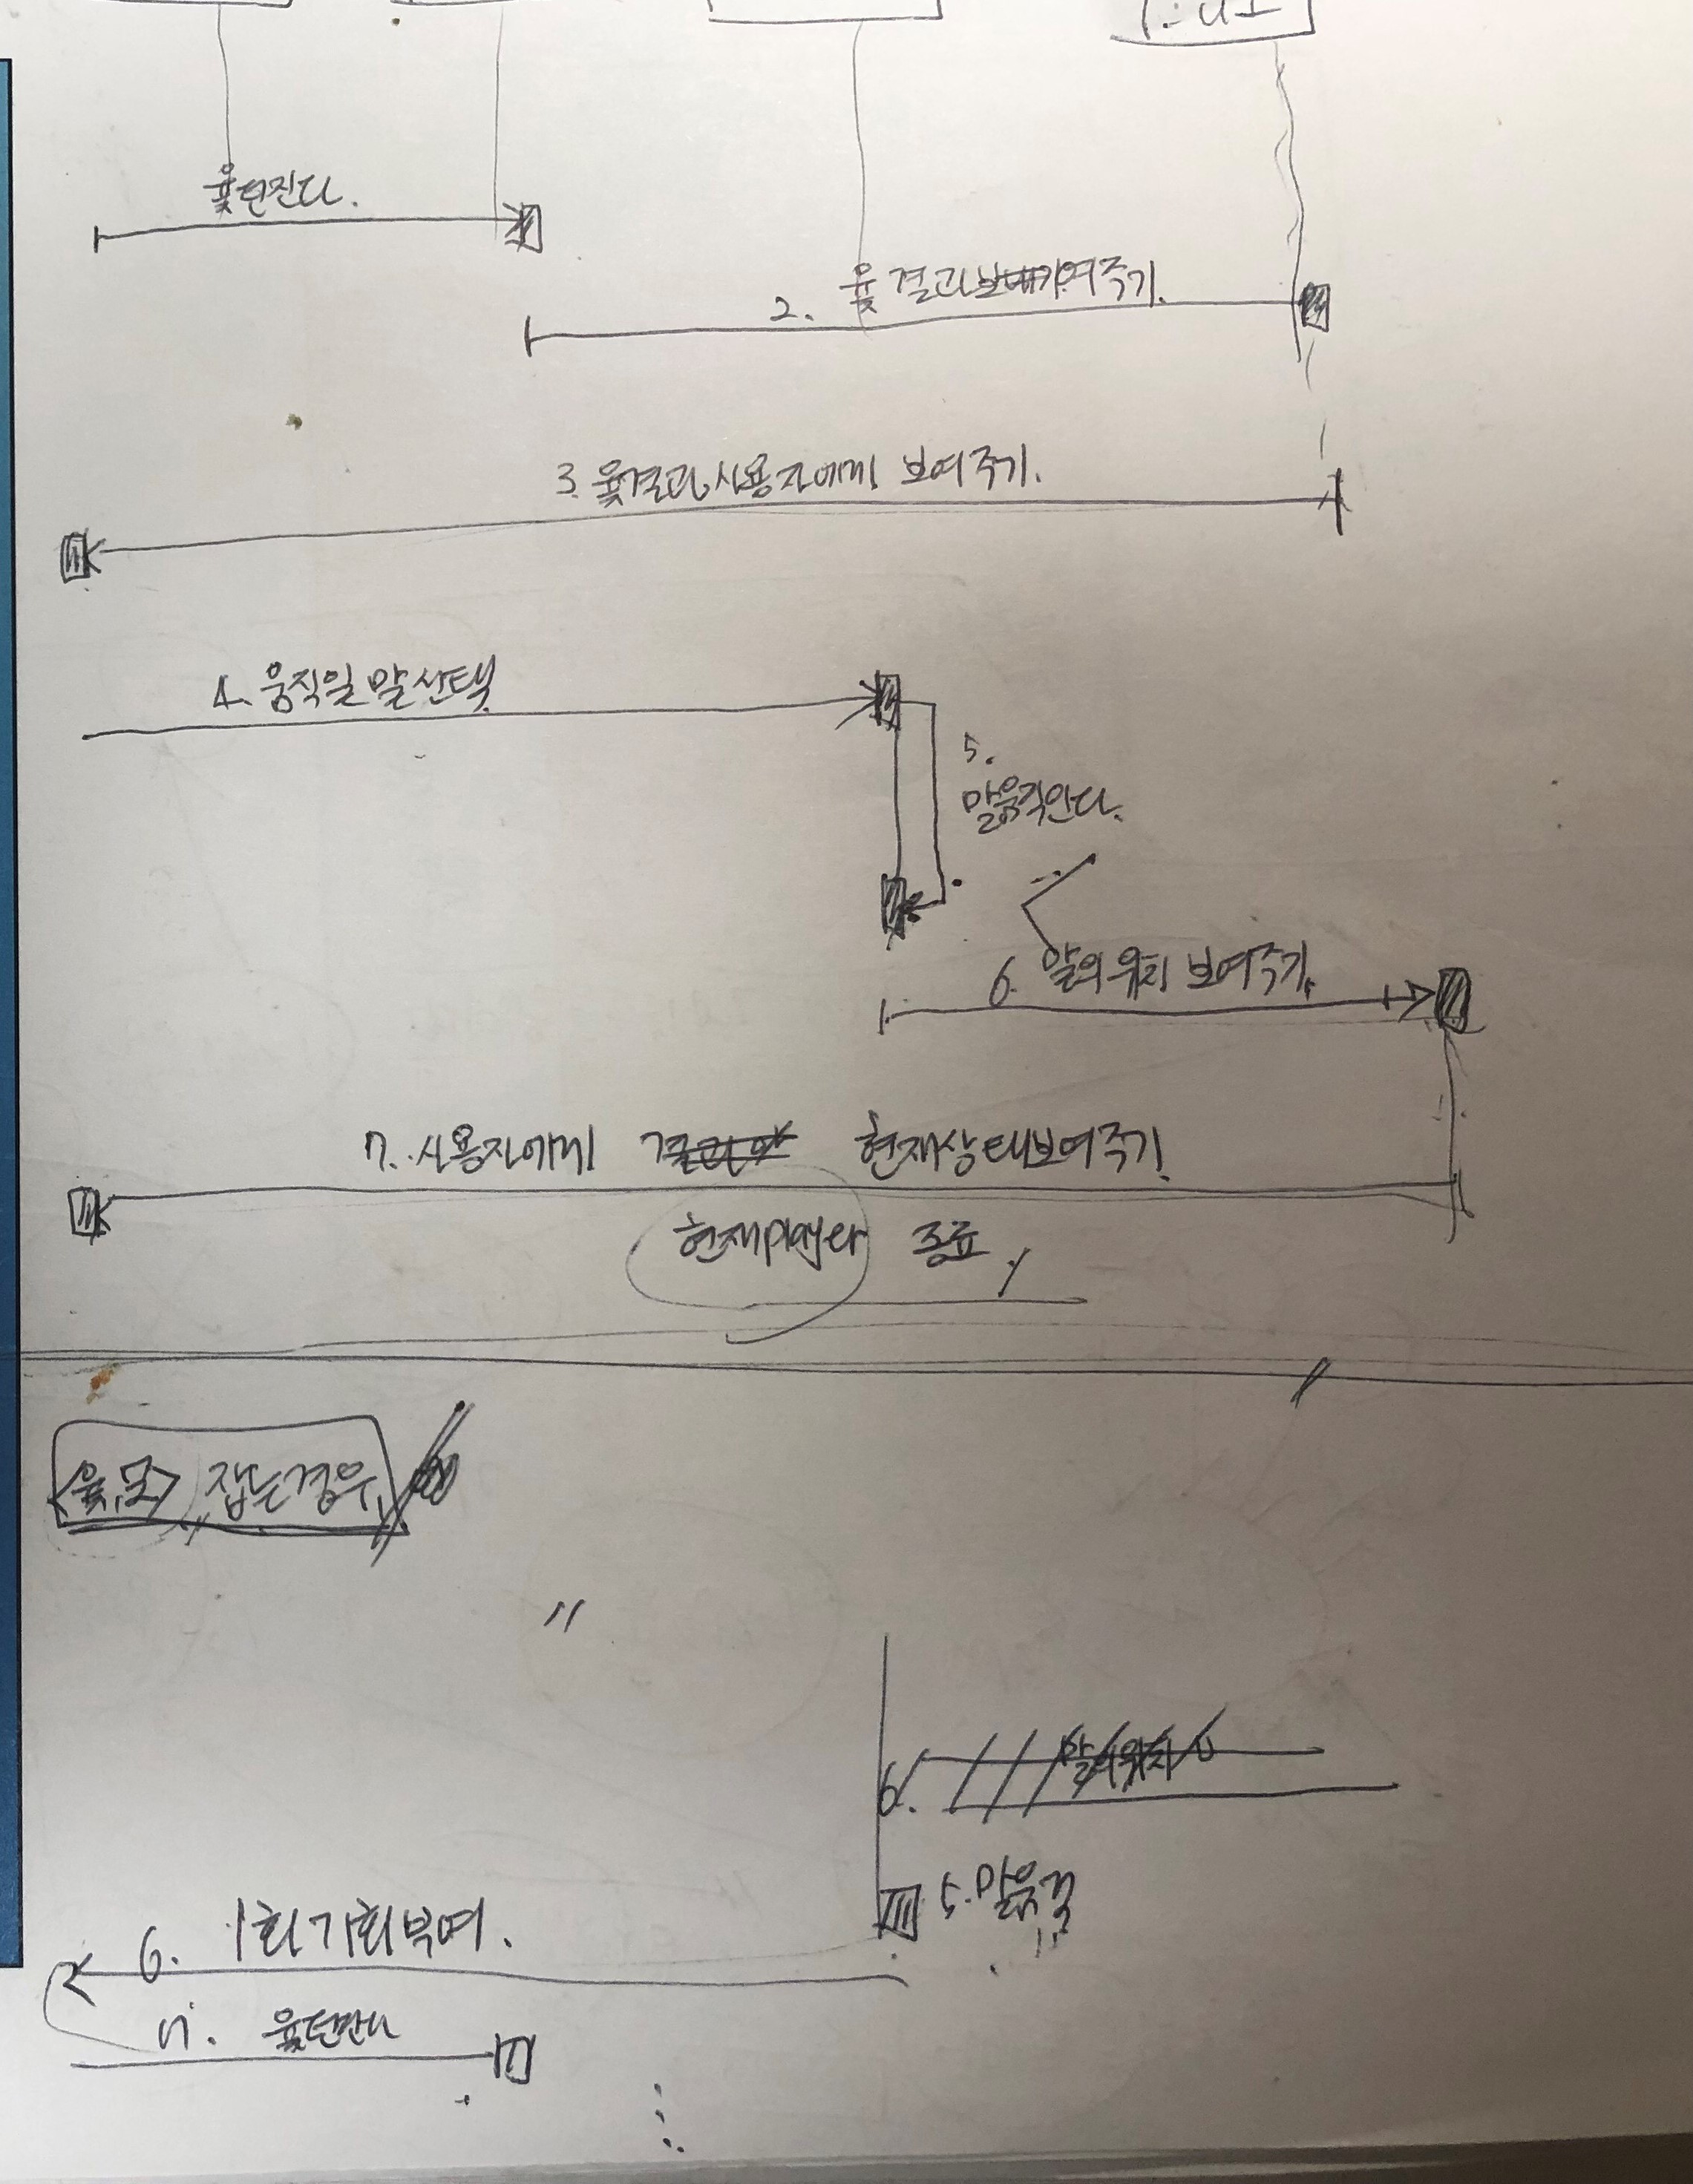 윷던진다.
2. 윷 결과 보여주기.
3. 윷결과 사용자에게 보여주기.
4. 움직일 말 선택
5.
말움직인다.
6. 말의 위치 보여주기.
7. 사용자에게 현재상태보여주기.
현재 종료.
<윷,모> 잡는경우
6. 말의위치
5. 말움직
6. 1회 기회부여.
7. 윷던진다